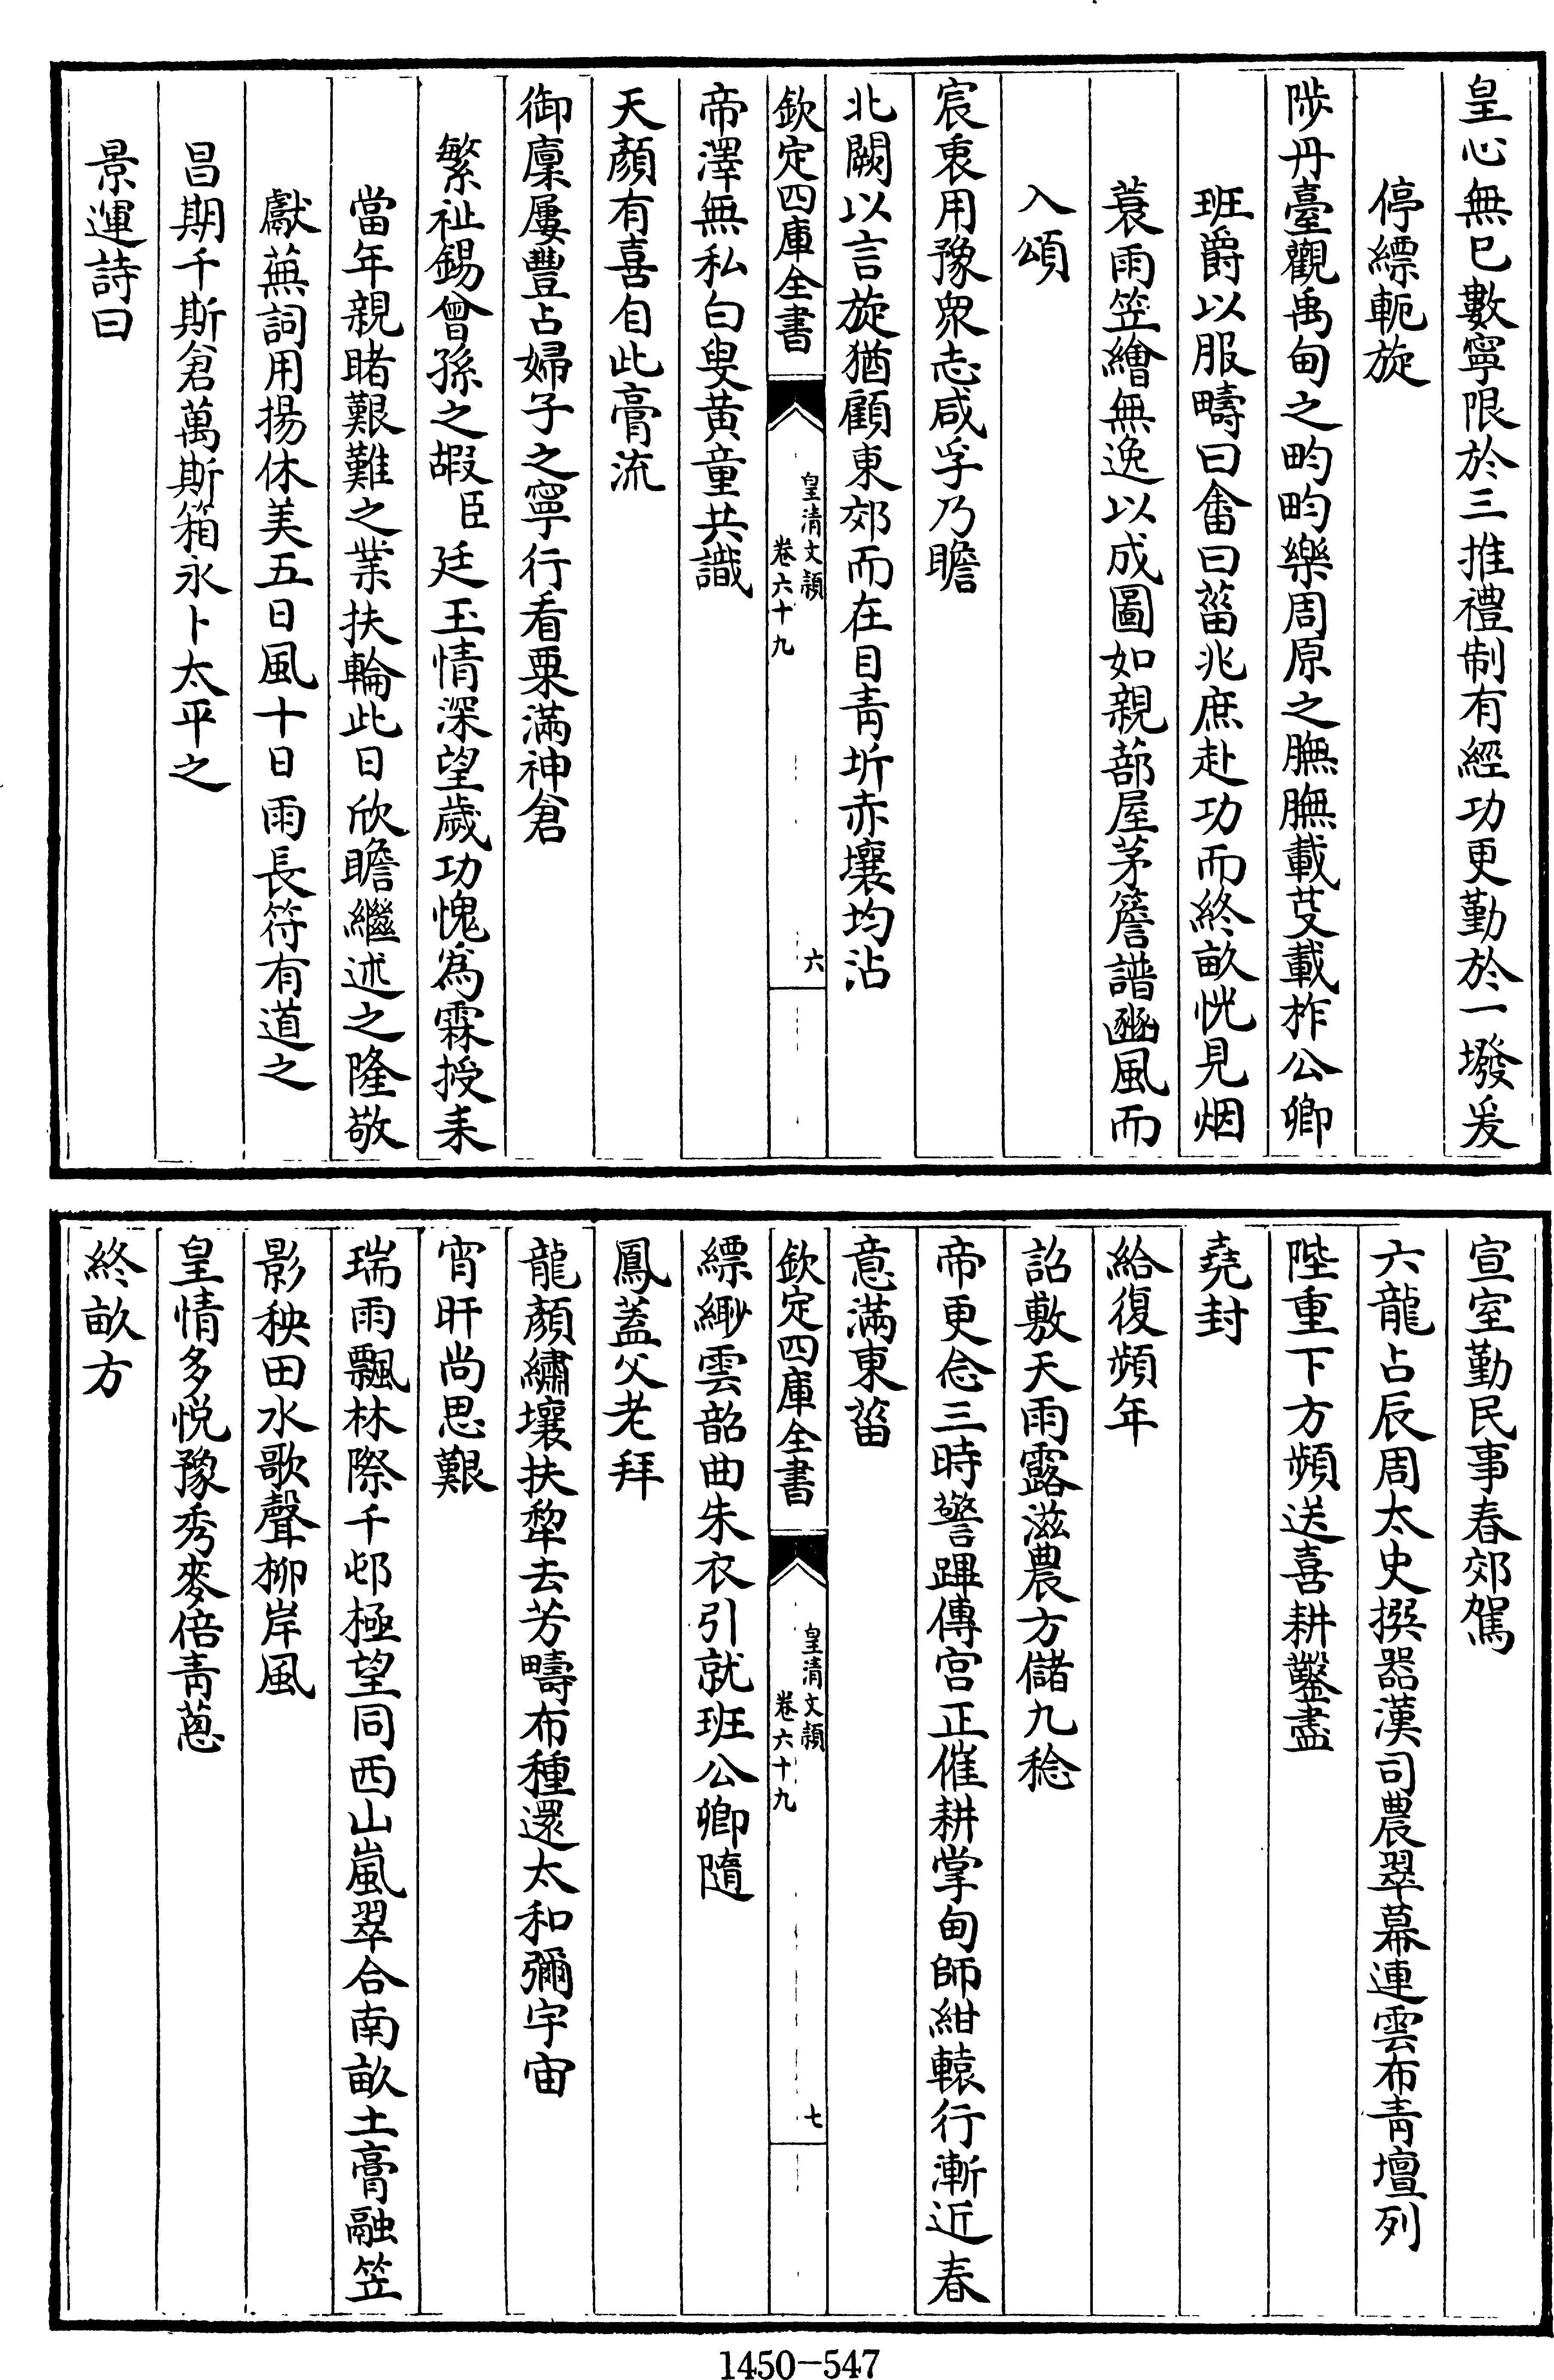 皇心無已數寧限於三推禮制有經功更勤於一墢爰
停縹軛旋
陟丹臺觀禹甸之畇畇樂周原之膴膴載芟載柞公卿
班爵以服疇曰畬曰菑兆庶赴功而終畝恍見烟
蓑雨笠繪無逸以成圖如親蔀屋茅簷譜豳風而
入頌
宸衷用豫衆志咸孚乃瞻
北闕以言旋猶顧東郊而在目青圻赤壤均沾
欽定四庫全書
皇清文穎
卷六十九
六
帝澤無私白叟黄童共識
天顏有喜自此膏流
御廩屢豐占婦子之寧行看粟滿神倉
繁祉錫曾孫之嘏臣廷玉情深望歲功愧為霖授耒
當年親睹艱難之業扶輪此日欣瞻繼述之隆敬
獻蕪詞用揚休美五日風十日雨長符有道之
昌期千斯倉萬斯箱永卜太平之
景運詩曰
宣室勤民事春郊駕
六龍占辰周太史撰器漢司農翠幕連雲布青壇列
陛重下方頻送喜耕鑿盡
堯封
給復頻年
詔敷天雨露滋農方儲九稔
帝更念三時警蹕傳宫正催耕掌甸師紺轅行漸近春
意滿東菑
欽定四庫全書
皇清文穎
卷六十九
七
縹緲雲韶曲朱衣引就班公卿隨
鳳蓋父老拜
龍顏繡壤扶犂去芳疇布種還太和彌宇宙
宵旰尚思艱
瑞雨飄林際千邨極望同西山嵐翠合南畝土膏融笠
影秧田水歌聲柳岸風
皇情多悦豫秀麥倍青蔥
終畝方
1450-547